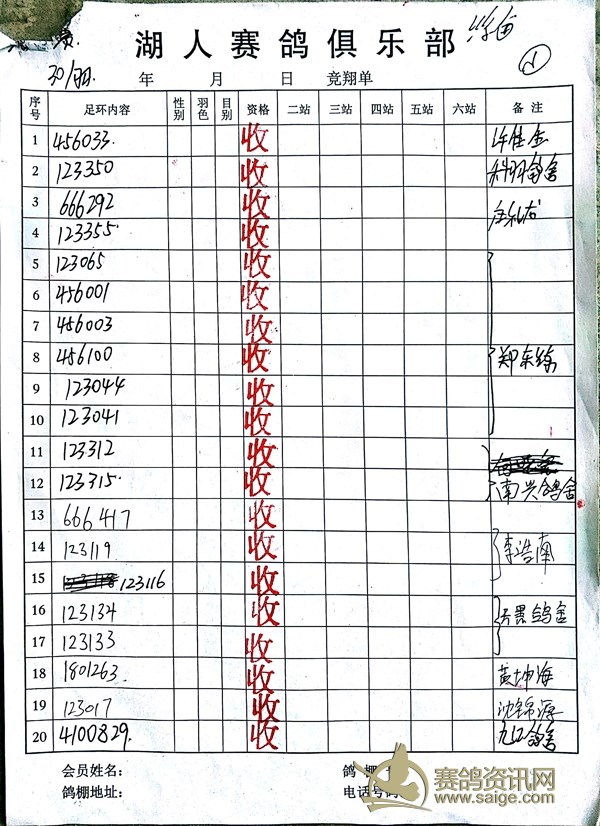 湖人赛鸽俱乐部
①
年 月 日 竞翔单
序号 足环内容 性别 羽色 目别 资格 二站 三站 四站 五站 六站 备注
1 456033 收 许佳金
2 123350 收
3 666292 收
4 123355 收
5 123065 收
6 456001 收
7 456003 收
8 456100 收 郑东练
9 123044 收
10 123041 收
11 123312 收
12 123315 收 南兴鸽舍
13 666417 收
14 123119 收 李浩南
15 123116 收
16 123134 收 鸽舍
17 123133 收
18 1801263 收 黄坤海
19 123017 收 沈锦源
20 4100829 收 九江鸽舍
会员姓名： 鸽棚
鸽棚地址： 电话号码
赛鸽资讯网
www.saige.com